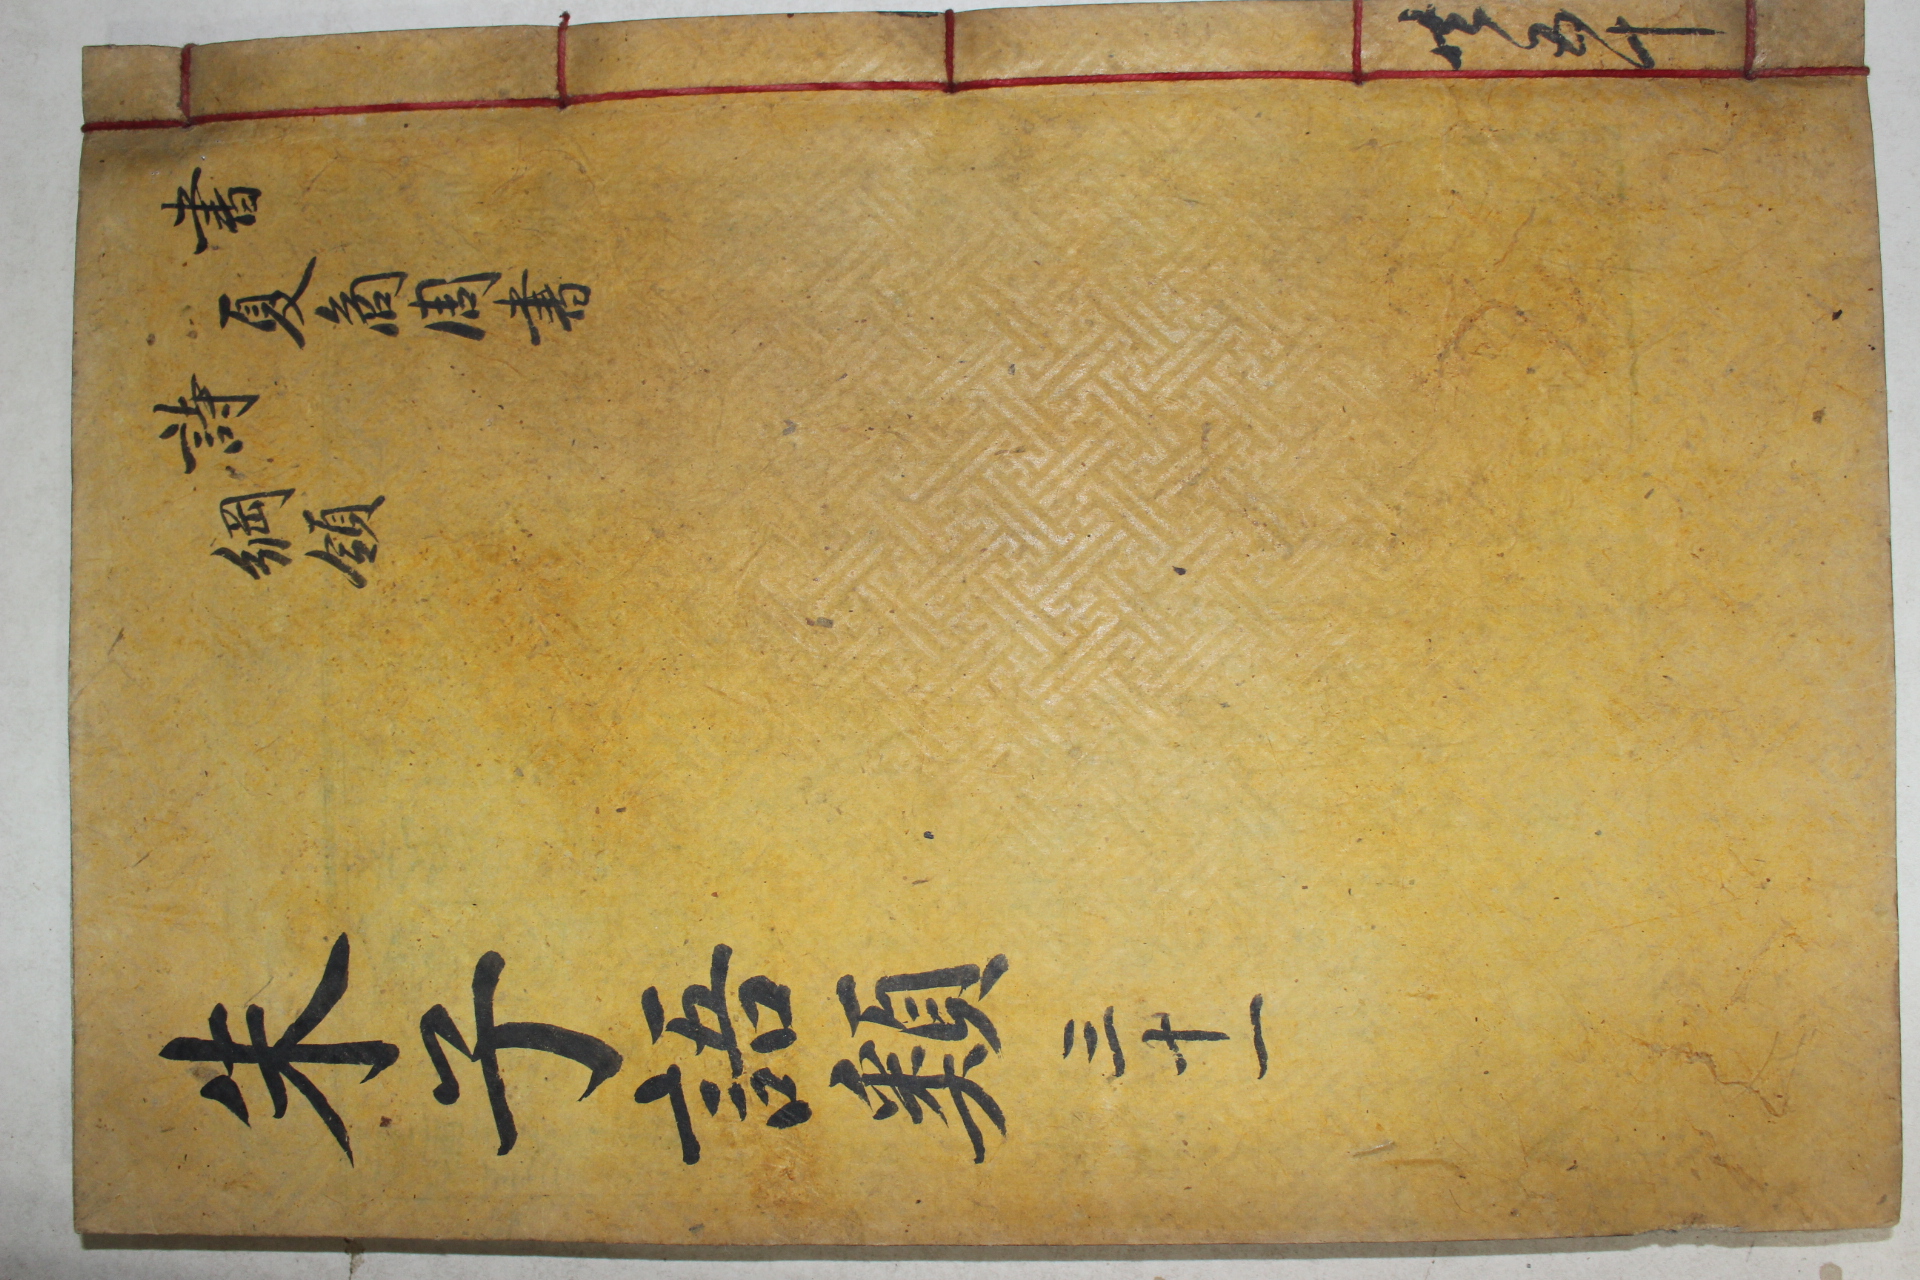 共五十
書
夏商周書
詩
綱領
朱子語類 三十一